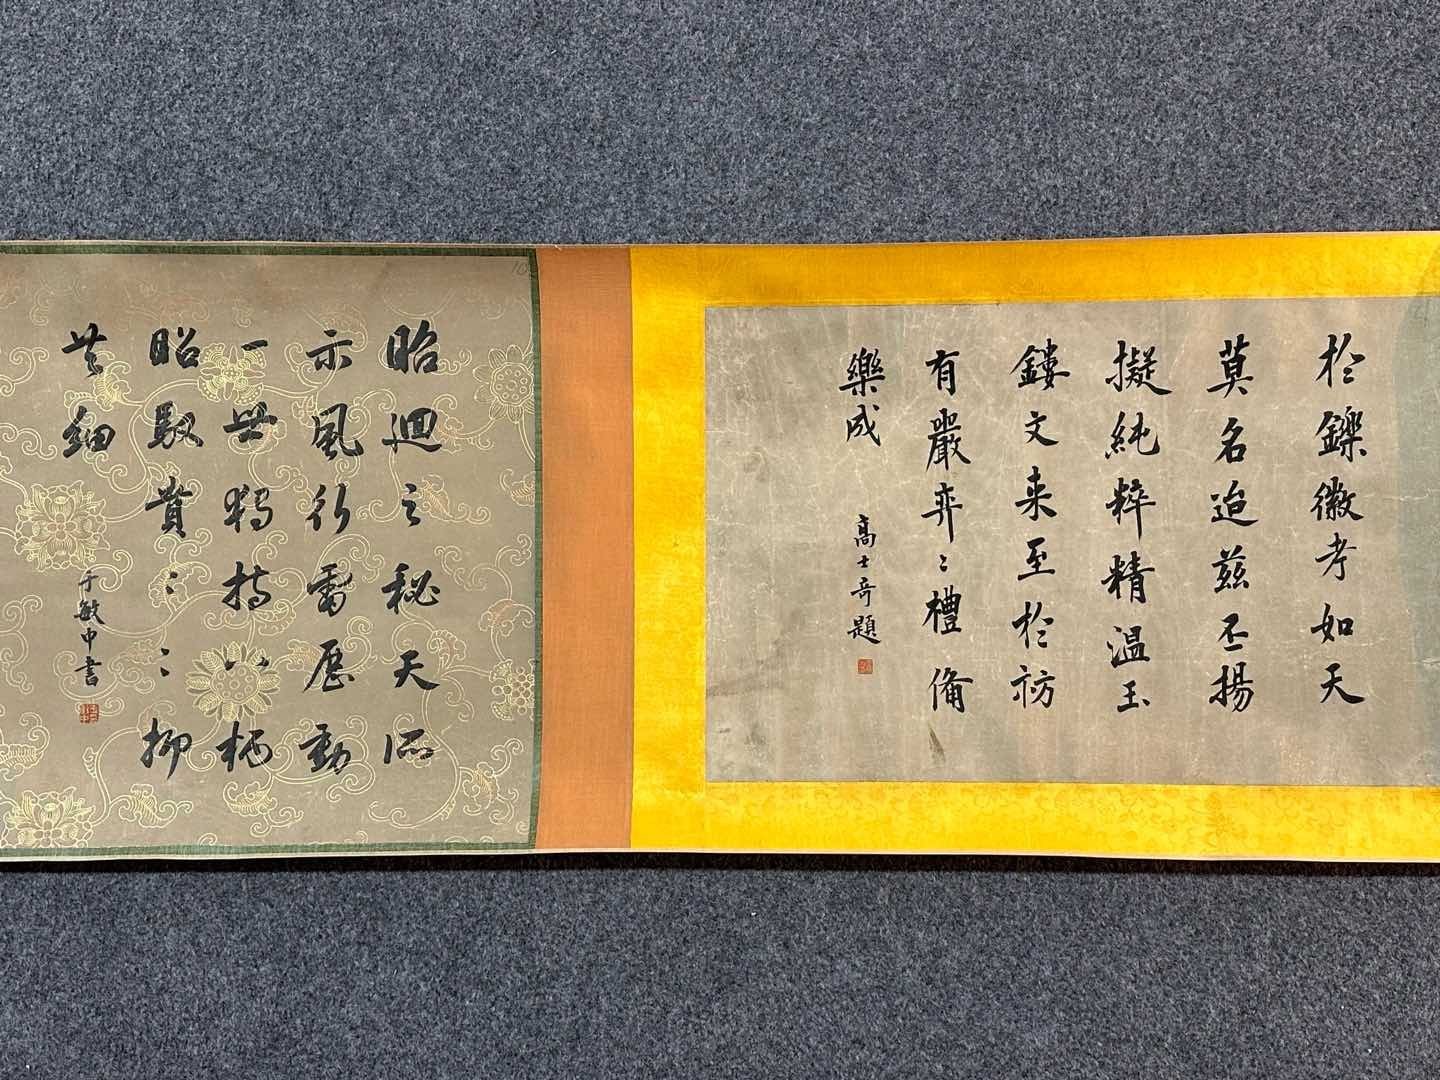 於鑠徽考如天
莫名迨茲丕揚
擬純粹精温玉
鏤文来至於祊
有嚴弈〻禮備
樂成
高士奇題
昭迴之秘天
示風行雷厲動
一世
昭馭賁〻〻抑
其細
于敏中書